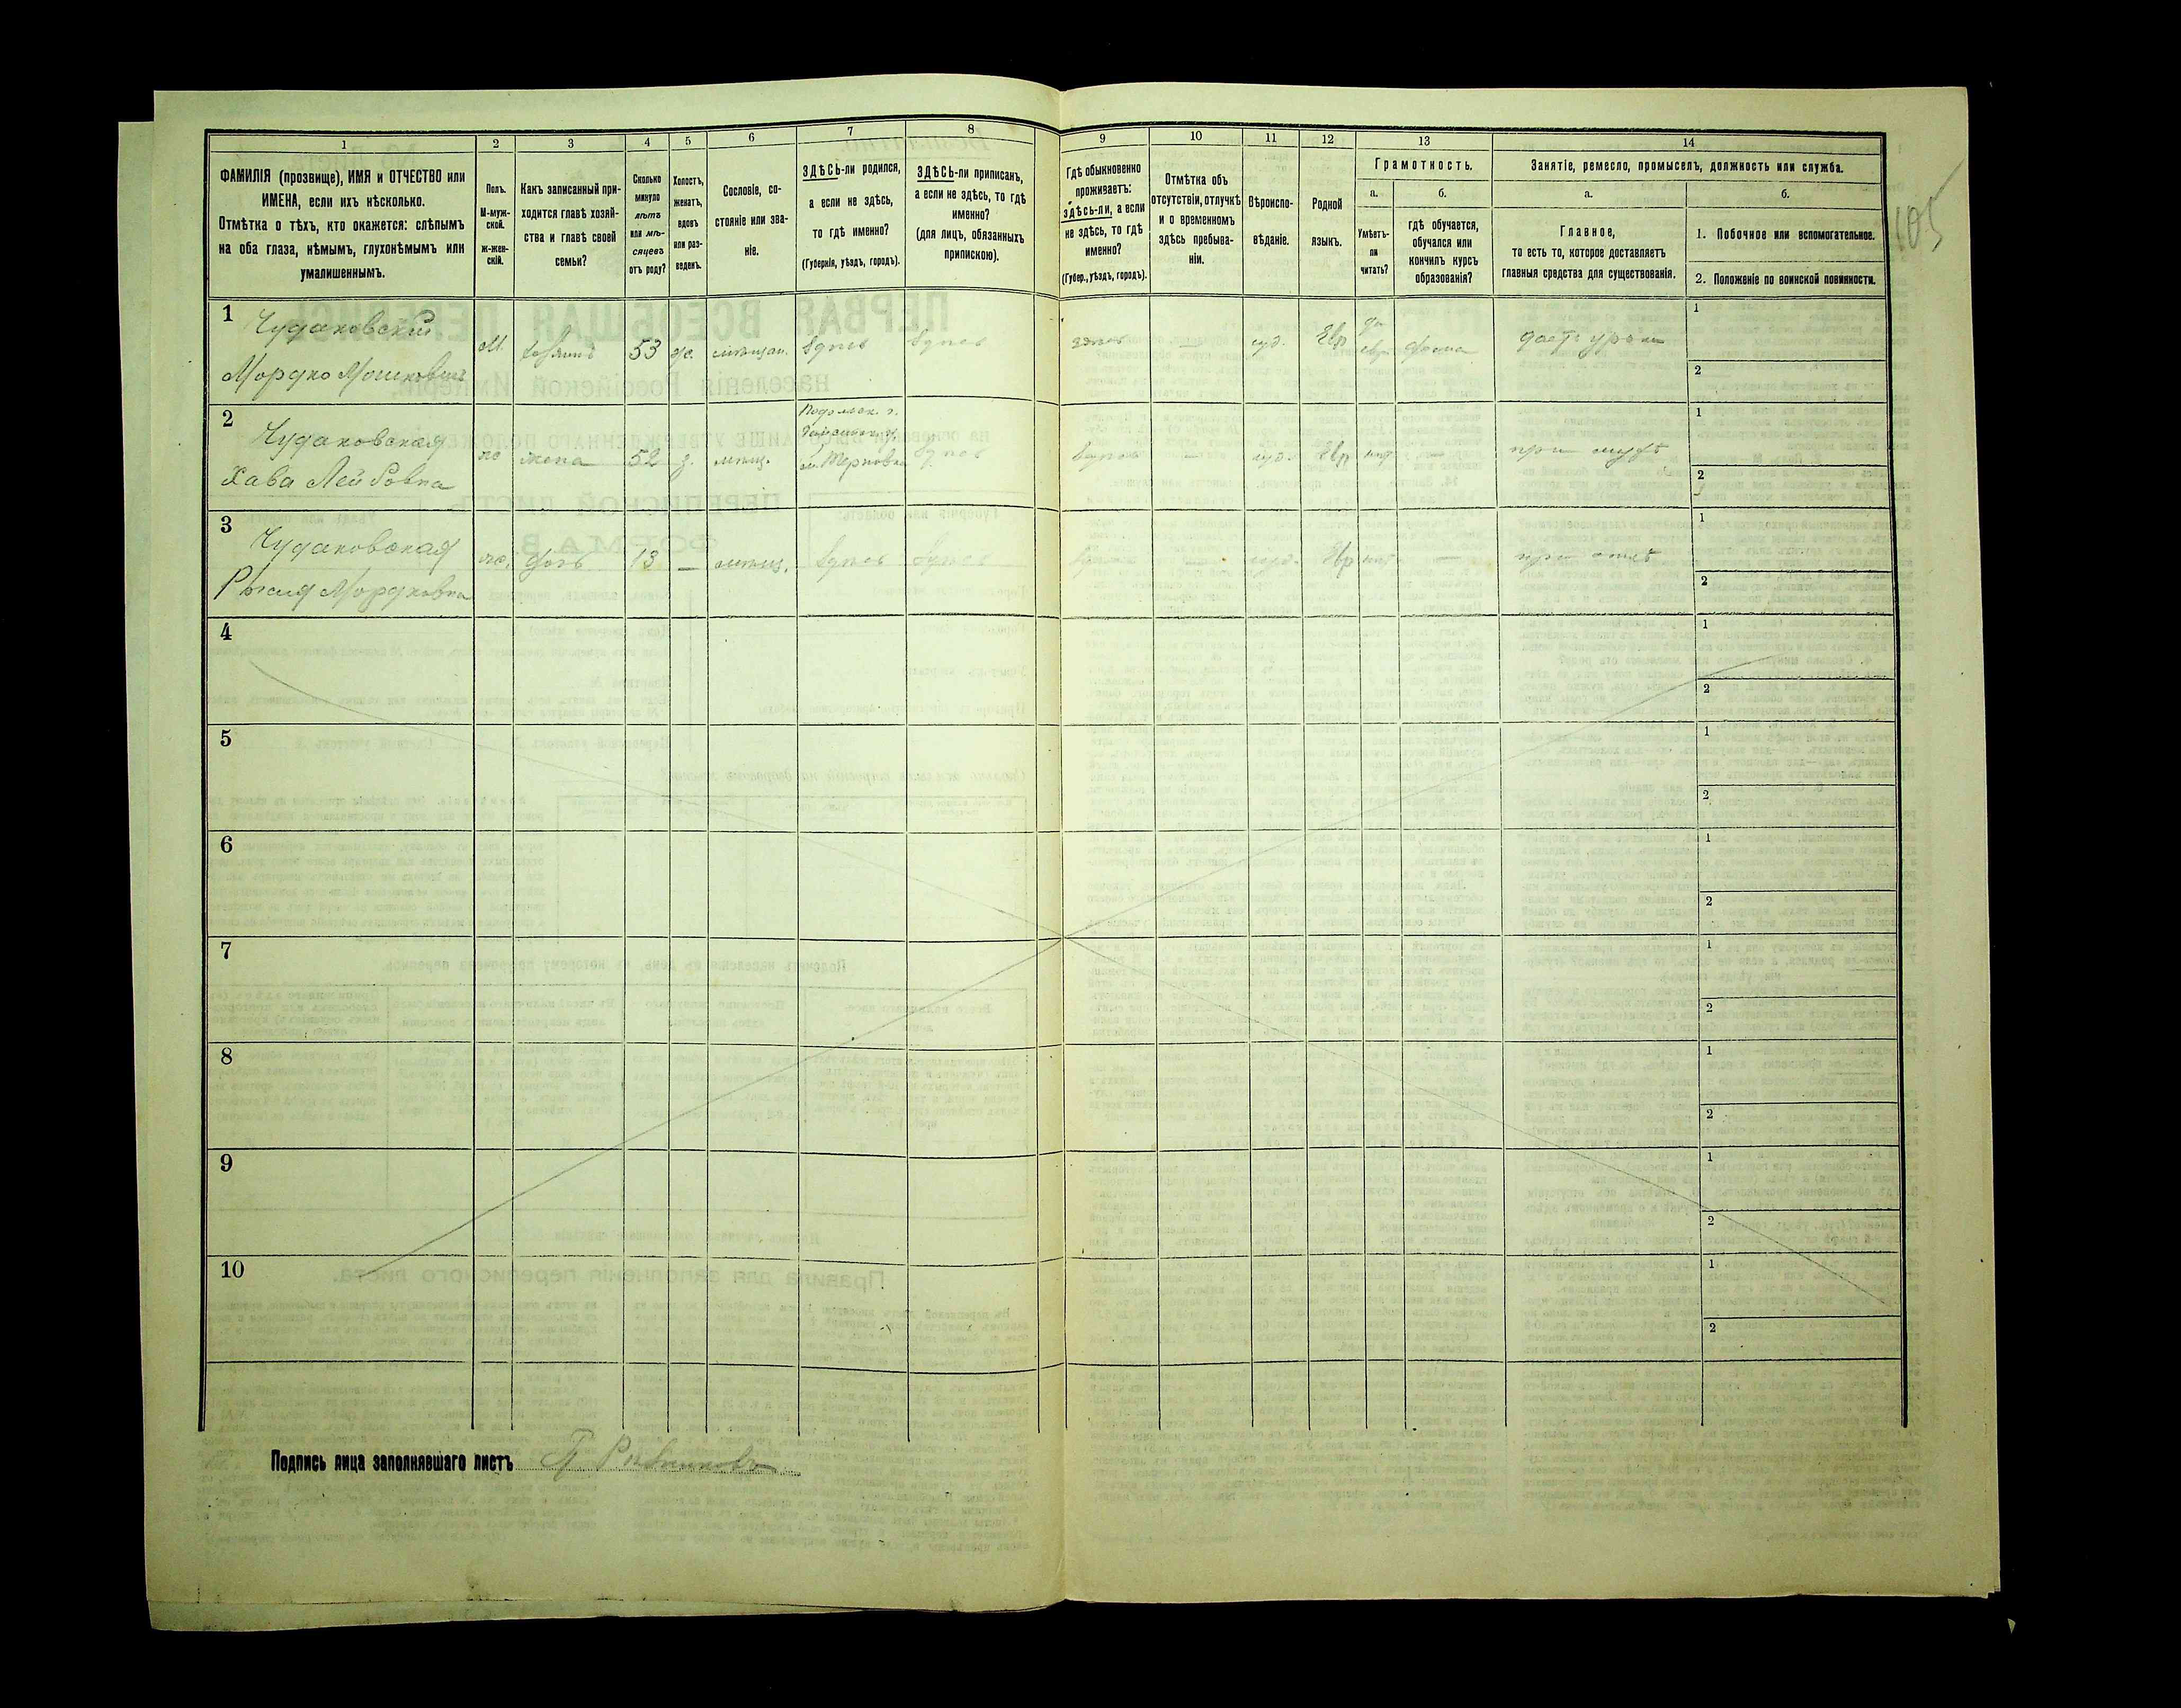 1
2
3
4
5
6
7
8
9
10
11
12
13
14
ФАМИЛІЯ (прозвище), ИМЯ и ОТЧЕСТВО или
ИМЕНА, если ихъ нѣсколько.
Отмѣтка о тѣхъ, кто окажется: слѣпымъ
на оба глаза, нѣмымъ, глухонѣмымъ или
умалишеннымъ.
Полъ.
М-муж-
ской.
ж-жен-
скій.
Какъ записанный при-
ходится главѣ хозяй-
ства и главѣ своей
семьи?
Сколько
минуло
лѣтъ
или мѣ-
сяцевъ
отъ роду?
Холостъ,
женатъ,
вдовъ
или раз-
веденъ.
Сословіе, со-
стояніе или зва-
ніе.
ЗДѢСЬ-ли родился,
а если не здѣсь,
то гдѣ именно?
(Губернія, уѣздъ, городъ).
ЗДѢСЬ-ли приписанъ,
а если не здѣсь, то гдѣ
именно?
(для лицъ, обязанныхъ
припискою).
Гдѣ обыкновенно
проживаетъ:
здѣсь-ли, а если
не здѣсь, то гдѣ
именно?
(Губер., уѣздъ, городъ).
Отмѣтка объ
отсутствіи, отлучкѣ
и о временномъ
здѣсь пребыва-
ніи.
Вѣроиспо-
вѣданіе.
Родной
языкъ.
Грамотность.
а.
б.
Умѣетъ-
ли
читать?
гдѣ обучается,
обучался или
кончилъ курсъ
образованія?
Занятіе, ремесло, промыселъ, должность или служба.
а.
б.
Главное,
то есть то, которое доставляетъ
главныя средства для существованія.
1. Побочное или вспомогательное.
2. Положеніе по воинской повинности.
105
1 Чудаковскій
Мордко Мошковичъ
М. хозяинъ 53 ж. мѣщан. здѣсь здѣсь
здѣсь — іуд. Евр да евр. дома даетъ уроки
1
2
2 Чудаковская
Хава Лейбовна
ж жена 52 з. мѣщ.
Подольск. г.
м. Терновка здѣсь
здѣсь — іуд. Евр нѣт — при мужѣ
1
2
3 Чудаковская
Мордковна
ж. дочь 13 — мѣщ. здѣсь здѣсь
здѣсь — іуд. Евр нѣт — при отцѣ
1
2
4
1
2
5
1
2
6
1
2
7
1
2
8
1
2
9
1
2
10
1
2
Подпись лица заполнявшаго листъ